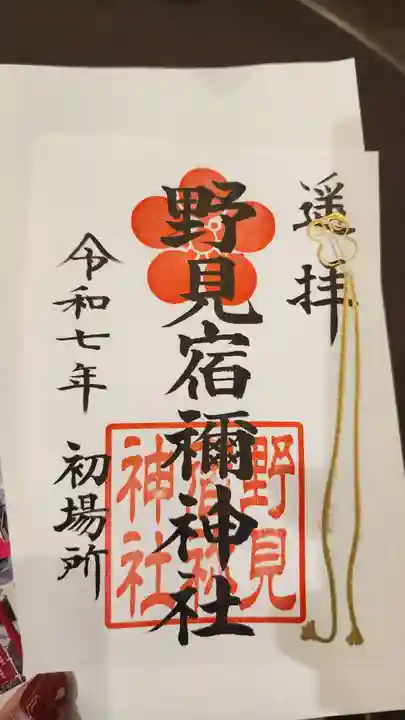 遥拝
野見宿禰神社
野見
宿祢
神社
令和七年 初場所